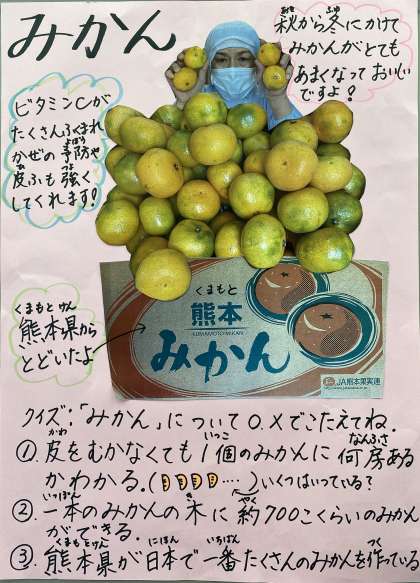 みかん
秋から冬にかけて
みかんがとても
あまくなっておいしい
ですよ!
ビタミンCが
たくさんふくまれ
かぜの予防や
皮ふも強く
してくれます!
くまもとけん
熊本県から
とどいたよ
くまもと
熊本
KUMAMOTO MIKAN
みかん
JA熊本果実連
クイズ:「みかん」について○.×でこたえてね.
かわ いっこ なんふさ
①皮をむかなくても1個のみかんに何房ある
かわかる.( ‥‥)いくつはいっている?
いっぽん き やく
②一本のみかんの木に約700こくらいのみかん
ができる.
くまもとけん にほん いちばん つく
③熊本県が日本で一番たくさんのみかんを作っている